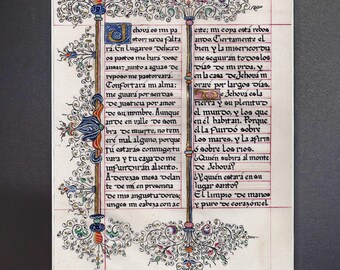 Jehova es mi pa
stor: nada falta
ra. En lugares delicad
os pastos me hará desc
ansar: junto á aguas de
reposo me pastoreará
Confortará mi alma:
me guiará por sendas
de justicia por amor
de su nombre. Aunque
ande en valle de som
bra de muerte, no tem
eré mal alguno, porque
tu estarás conmigo: tu v
ara y tu cayado me
infundirán aliento.
A derezas mesa delan
te de mi en presencia
de mis angustiadores:
unges mi cabeza con ac
eite; mi copa está rebos
ando. Ciertamente el
bien y la misericordia
me seguirán todos los
dias de mi vida, y
en la casa de Jehová m
oraré por largos dias.
De Jehová es la
tierra y su plenitud
el mundo, y los que
en él habitan. Porque
él la fundó sobre
los mares, y la afirmó
sobre los rios.
¿Quién subirá al monte
de Jehová?
¿Y quién estará en su
lugar santo?
El limpio de manos
y puro de corazón: el